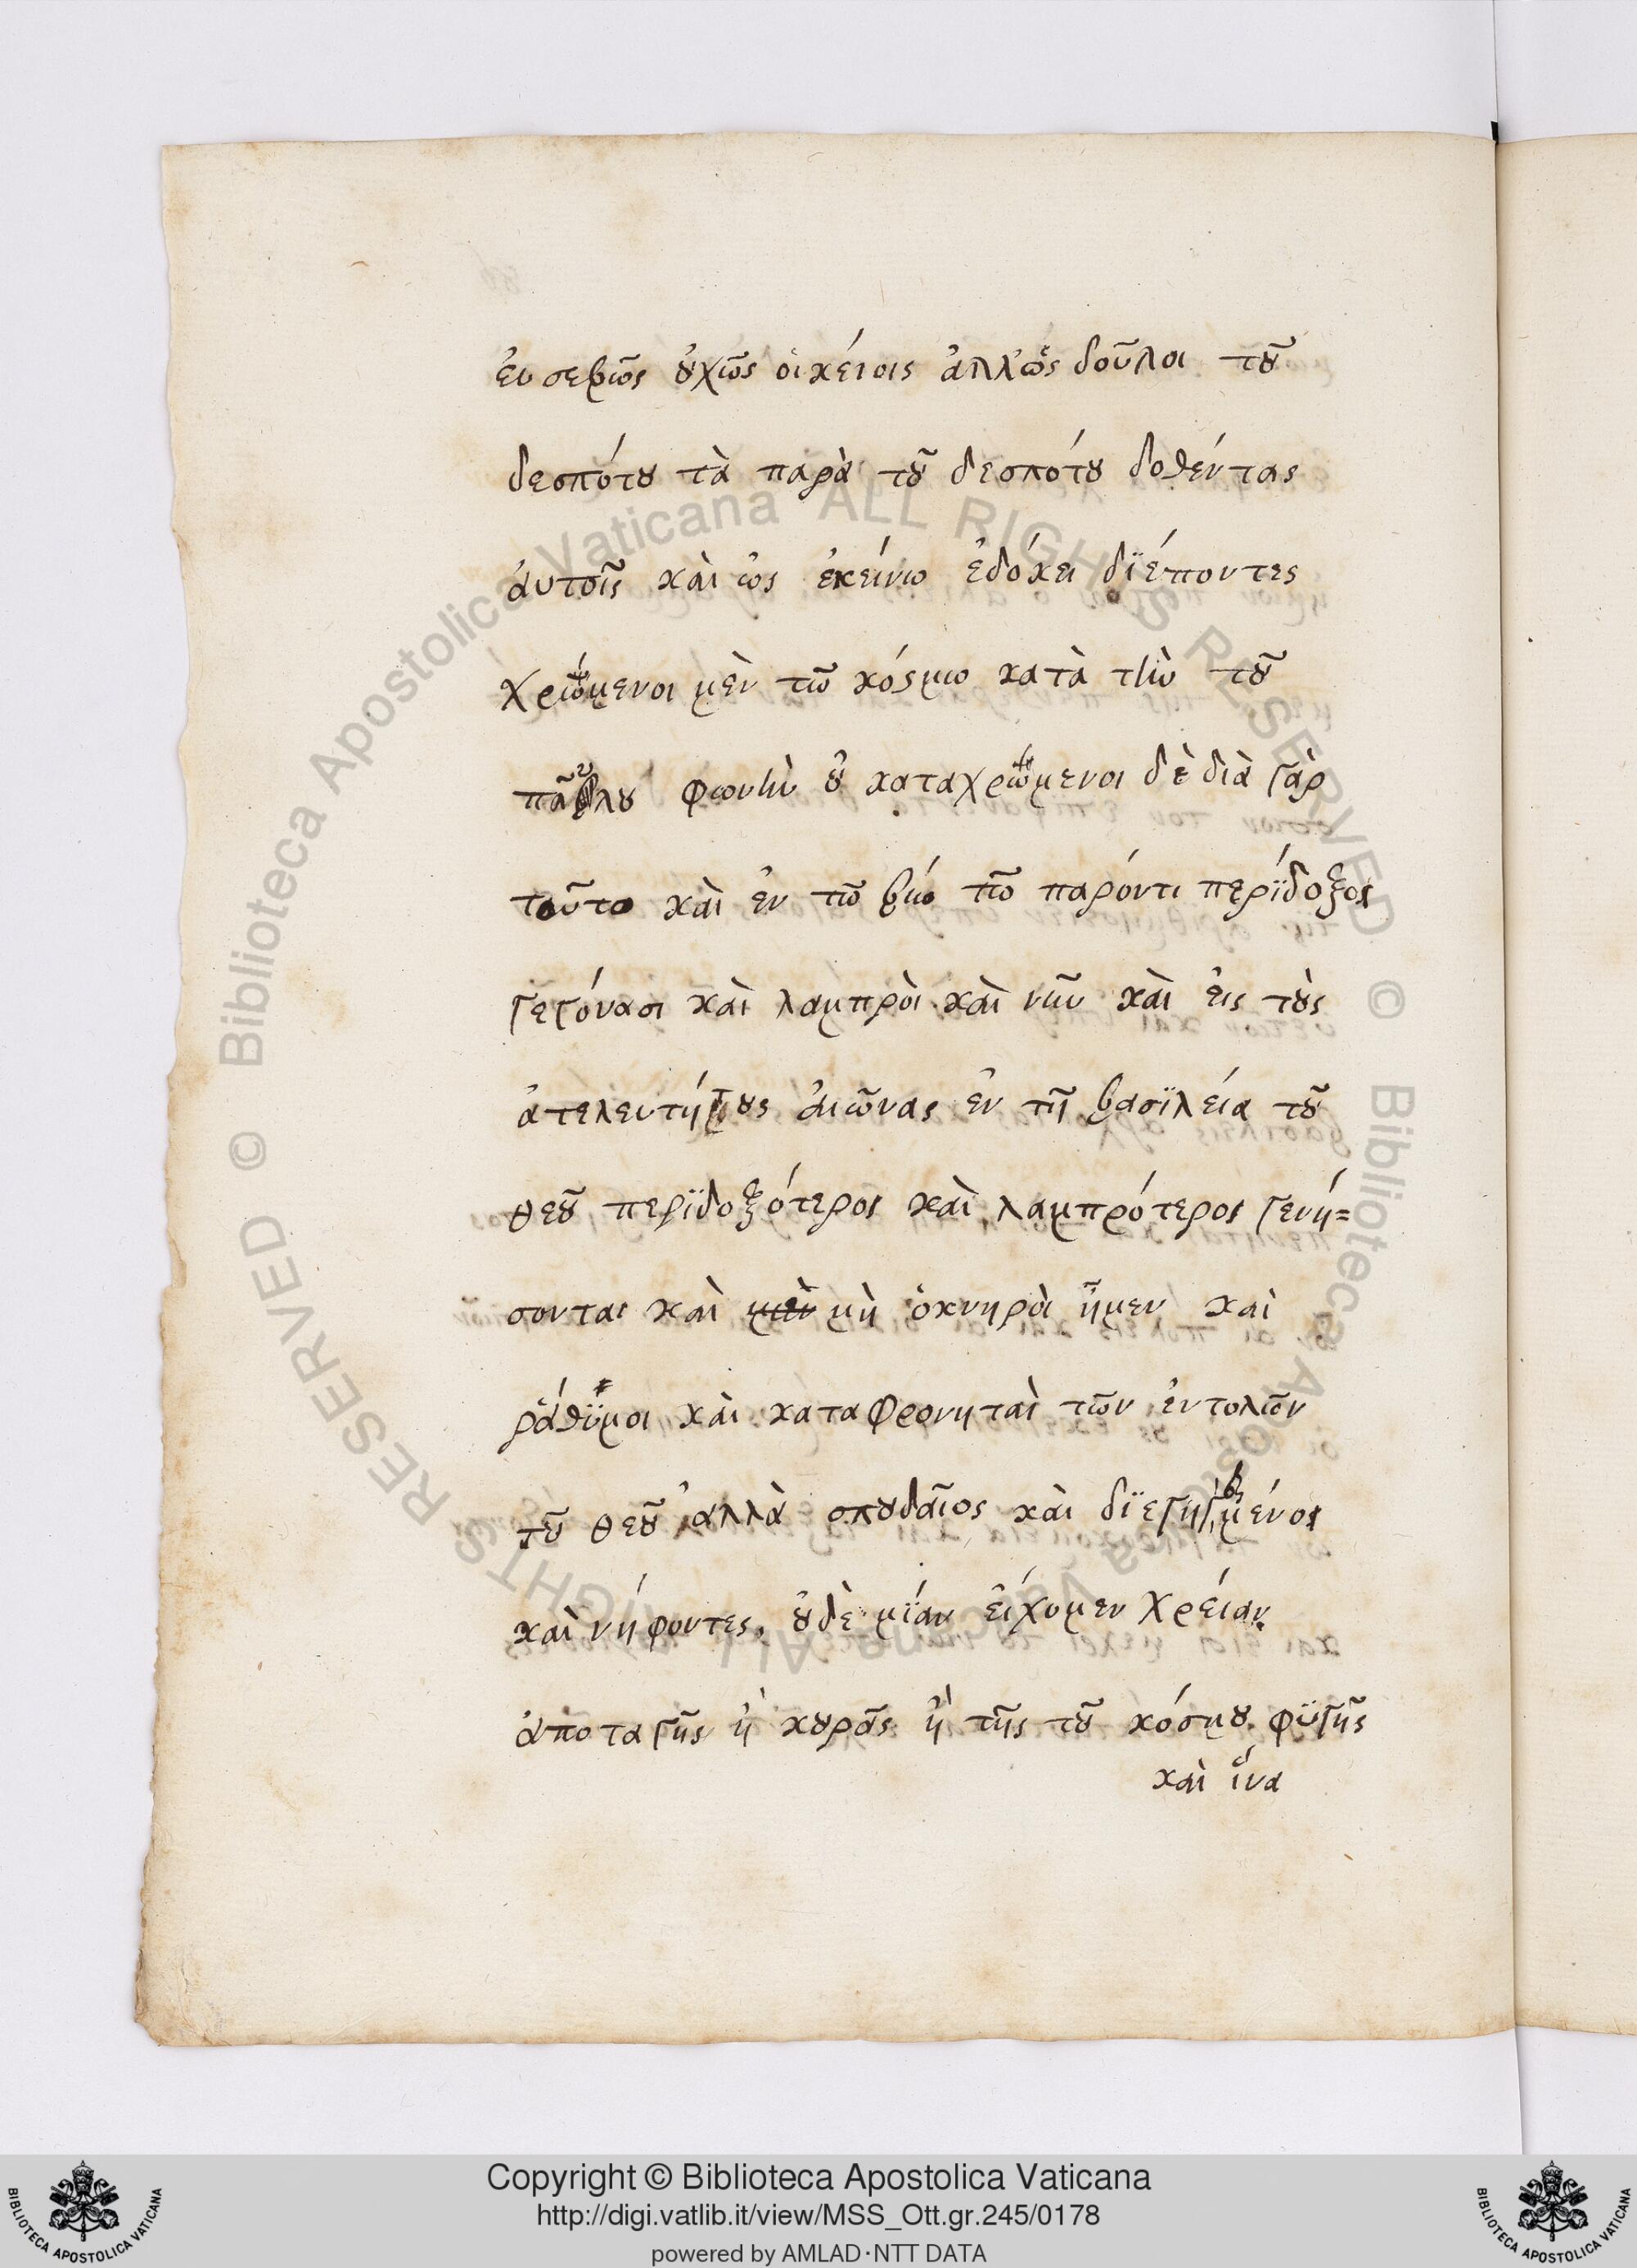 ἐυσεβῶς ὀυχῶς ὀικέιοις ἀλλῶς δοῦλοι τοῦ
δεσπότου τὰ παρὰ τοῦ δεσπότου δοθέντας
ἀυτοῖς καὶ ὡς ἐκείνω ἐδόκει δϊέποντες
χρώμενοι μὲν τῶ κόσμω κατὰ τὴν τοῦ
παῦλου φωνὴν ὀυ καταχρώμενοι δὲ διὰ γὰρ
τοῦτο καὶ ἐν τῶ βίω τῶ παρόντι περίδοξοι
γεγόνασι καὶ λαμπρὸι καὶ νῦν καὶ ἐις τοὺς
ἀτελευτήτους ἀιῶνας ἐν τῆ βασϊλεία τοῦ
θεοῦ περϊδοξότεροι καὶ λαμπρότεροι γενή=
σονται καὶ μὴ ὀκνηρὰ ἦμεν καὶ
ῥάθϋμοι καὶ καταφρονηταὶ τῶν ἐντολῶν
τοῦ θεοῦ ἀλλὰ σπουδαῖος καὶ
καὶ νήφοντες, ὀυδὲ μϊάν ἐίχομεν χρείαν.
ἀποταγῆς ἢ κουρᾶς ἢ τῆς τοῦ κόσμου φϋγῆς
καὶ ἵνα
Copyright © Biblioteca Apostolica Vaticana
http://digi.vatlib.it/view/MSS_Ott.gr.245/0178
powered by AMLAD·NTT DATA
BIBLIOTECA APOSTOLICA VATICANA
BIBLIOTECA APOSTOLICA VATICANA
© Biblioteca Apostolica Vaticana ALL RIGHTS RESERVED
© Biblioteca Apostolica Vaticana ALL RIGHTS RESERVED